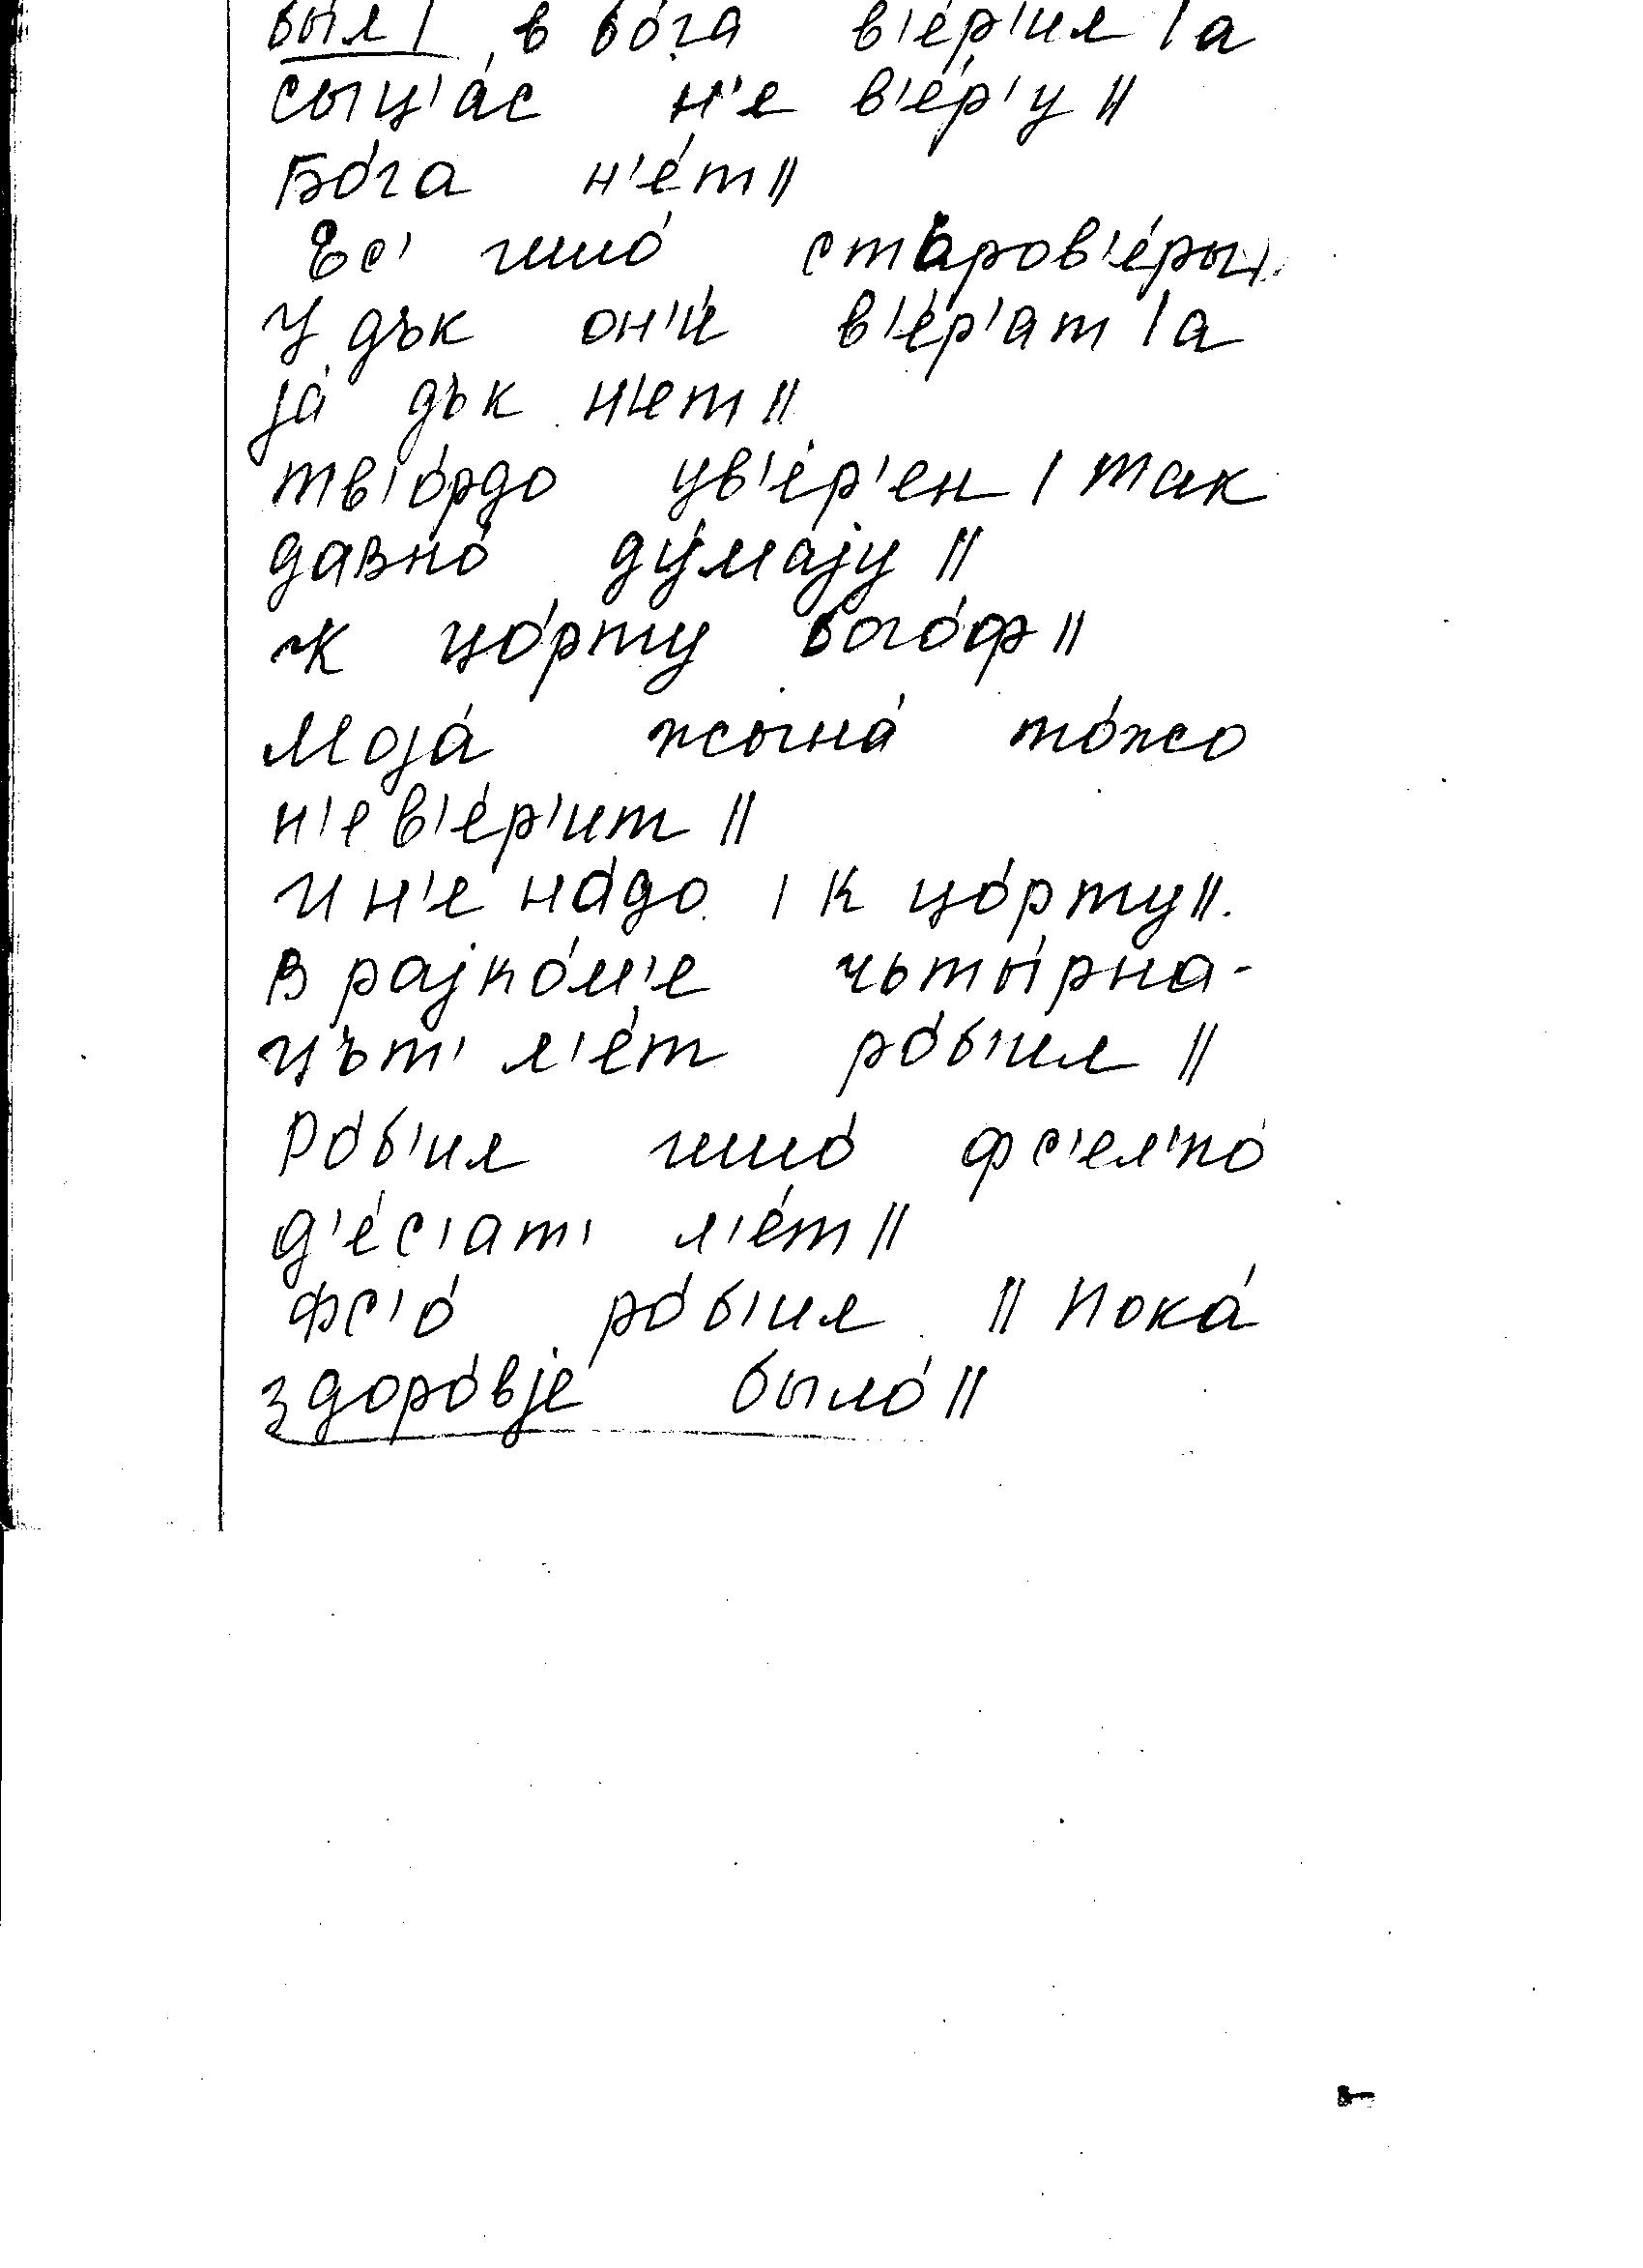 был | в бо́га в'е́р'ил | а
сыц'а́с н'е в'е́р'у ||
Бо́га н'е́т ||
Ес' ишшо́ старов'е́ры |
у дък он'и́ в'е́р'ат | а
jа́ дък н'ет ||
тв'о́рдо ув'е́р'ен | так
давно́ ду́маjу ||
к цо́рту бого́ф ||
Моjа́ жына́ то́жо
н'е в'е́р'ит ||
И н'е на́до | к цо́рту ||
В раjко́м'е чьты́рна-
цът' л'е́т ро́б'ил ||
Ро́б'ил ишшо́ фс'ел'ко́
д'е́с'ат' л'е́т ||
Фс'о́ ро́б'ил || Пока́
здоро́вjе было́ ||